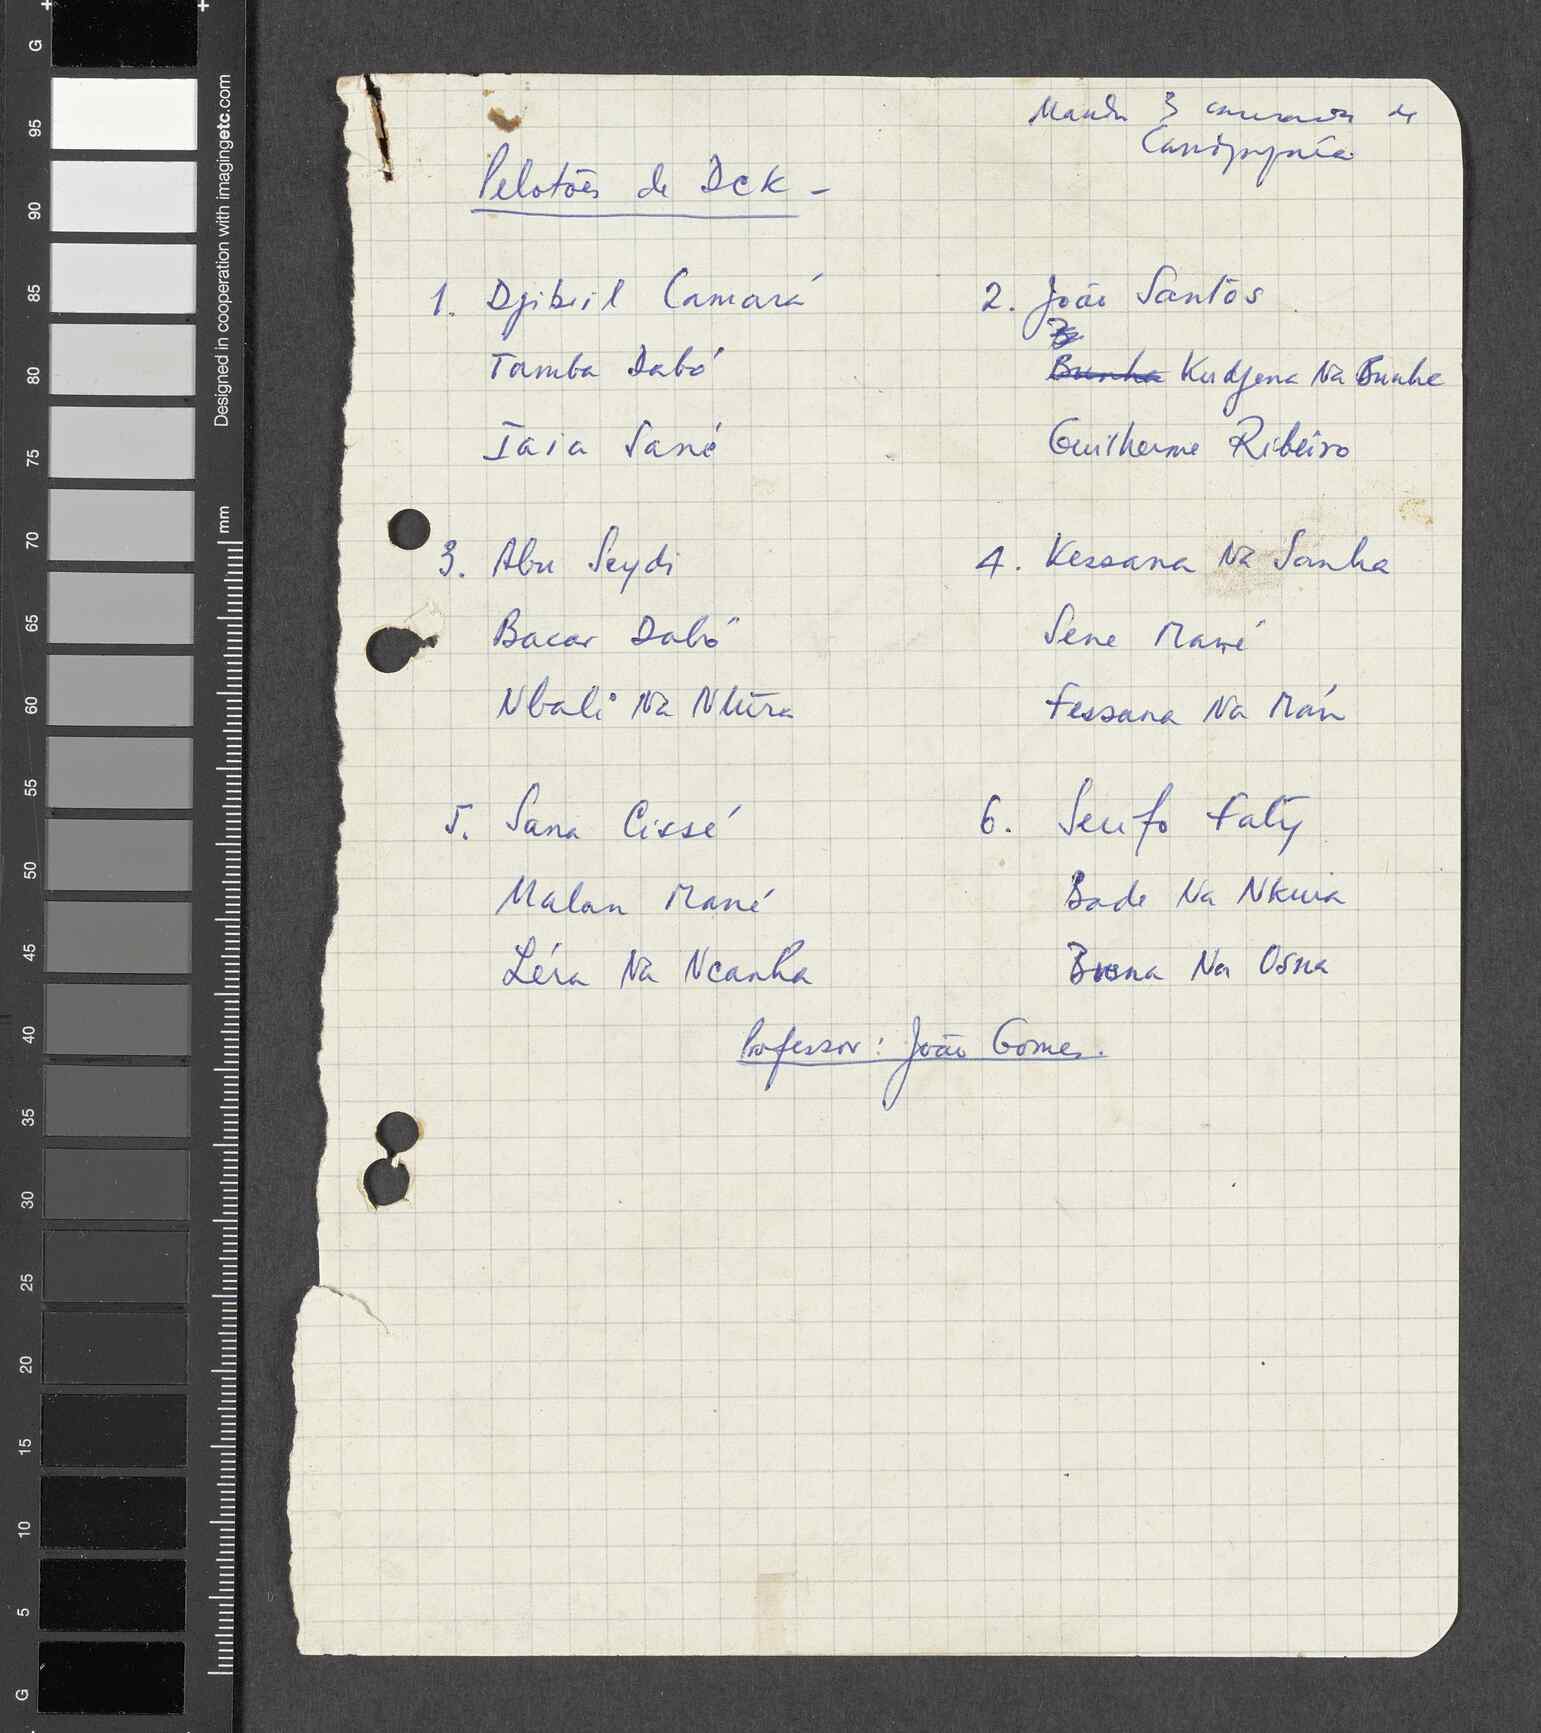 3 de
Pelotões de Dck -
1. Djibril Camará
Tamba Dabó
Iaia Sané
2. João Santos
Bunha Kudjena Na Bunhe
Guilherme Ribeiro
3. Abu Seydi
Bacar Dabó
Nbali Na
4. Kessana Na Sanha
Sene Mané
Fessana Na Mán
5. Sana Cissé
Malan Mané
Léra Na Ncanha
6. Serifo Faty
Bade Na Nkuia
Na Osna
Professor: João Gomes.
G
95
90
85
80
75
70
65
60
55
50
45
40
35
30
25
20
15
10
5
G
Designed in cooperation with imagingetc.com
mm